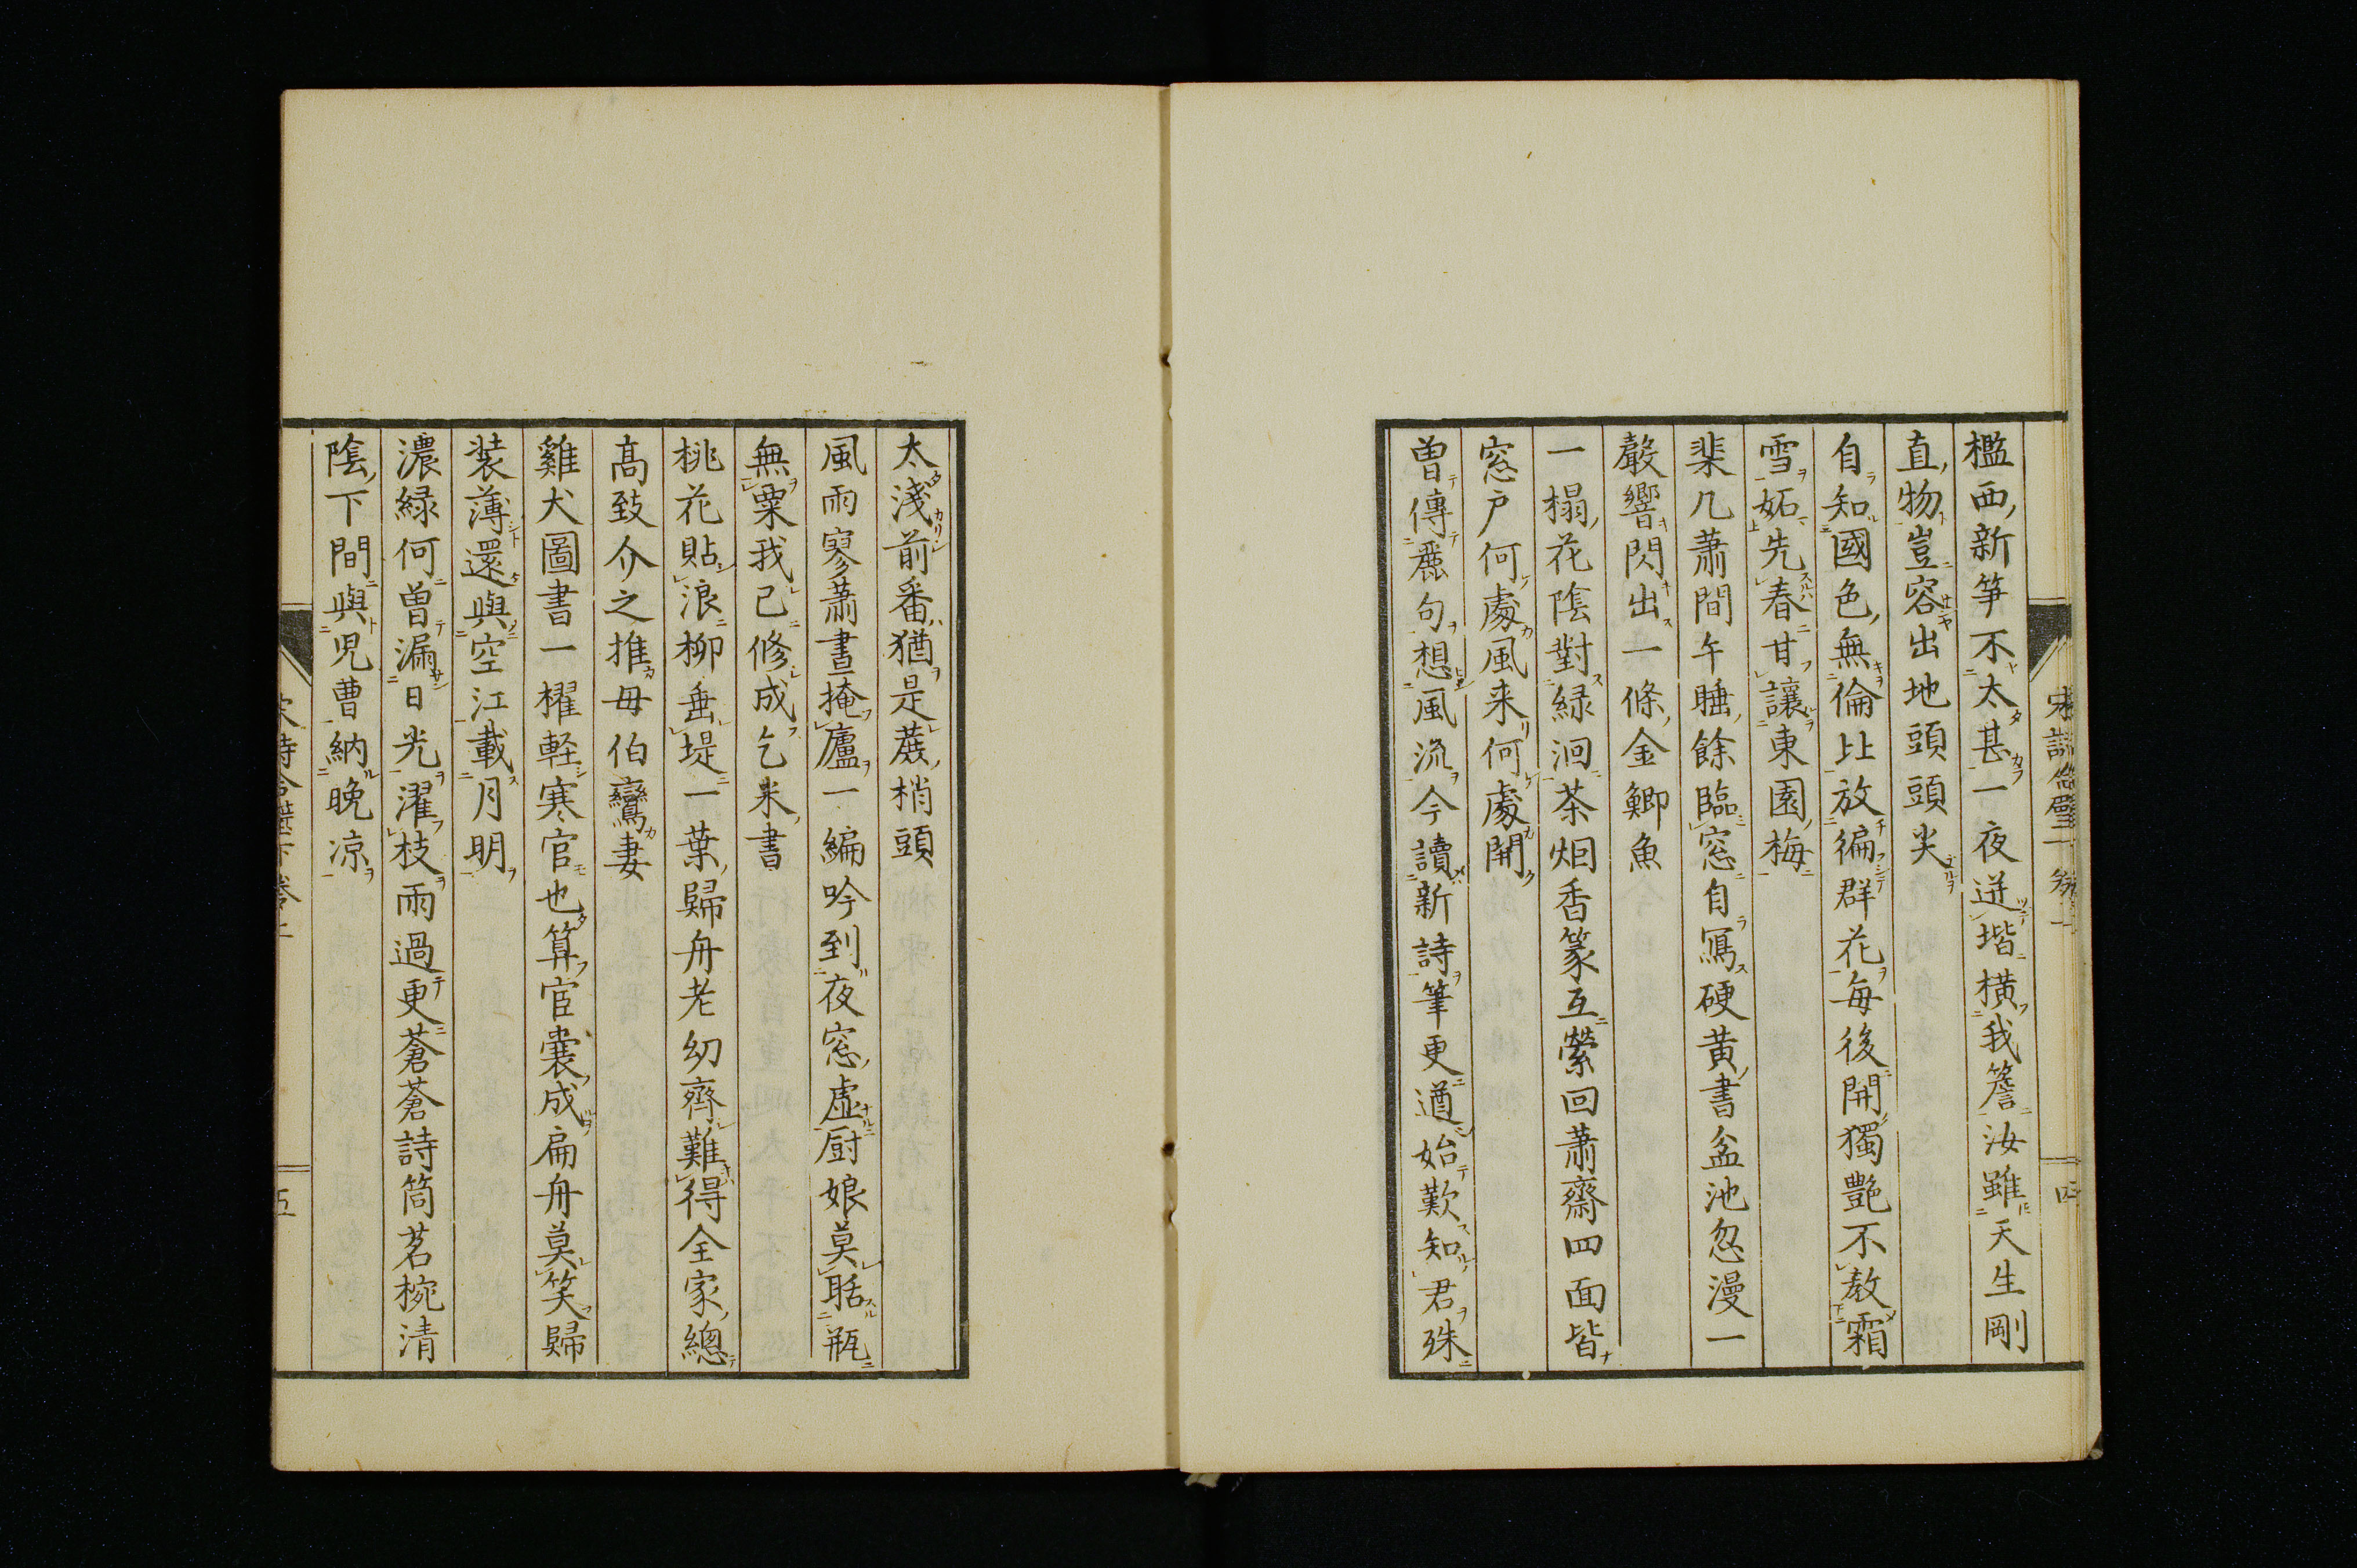 檻西新笋不太甚一夜迸堦横我簷汝雖天生剛
直物豈容出地頭頭尖
自知國色無倫比放徧群花毎後開獨艶不教霜
雪妬先春甘讓東園梅
棐几蕭間午睡餘臨窓自寫硬黄書盆池忽漫一
聲響閃出一條金鯽魚
一榻花陰對緑洄茶烟香篆互縈回蕭齋四面皆
窓戸何處風来何處開
曽傳麗句想風流今讀新詩筆更遒始歎知君殊
太淺前番猶是蔗梢頭
風雨寥蕭晝掩廬一編吟到夜窓虚厨娘莫聒瓶
無粟我已修成乞米書
桃花貼浪柳垂堤一葉歸舟老幼齊難得全家總
高致介之推母伯鸞妻
雞犬圖書一櫂軽寒官也算宦囊成扁舟莫笑歸
装薄還與空江載月明
濃緑何曽漏日光濯枝雨過更蒼蒼詩筒茗椀清
陰下間與児曹納晩凉
五